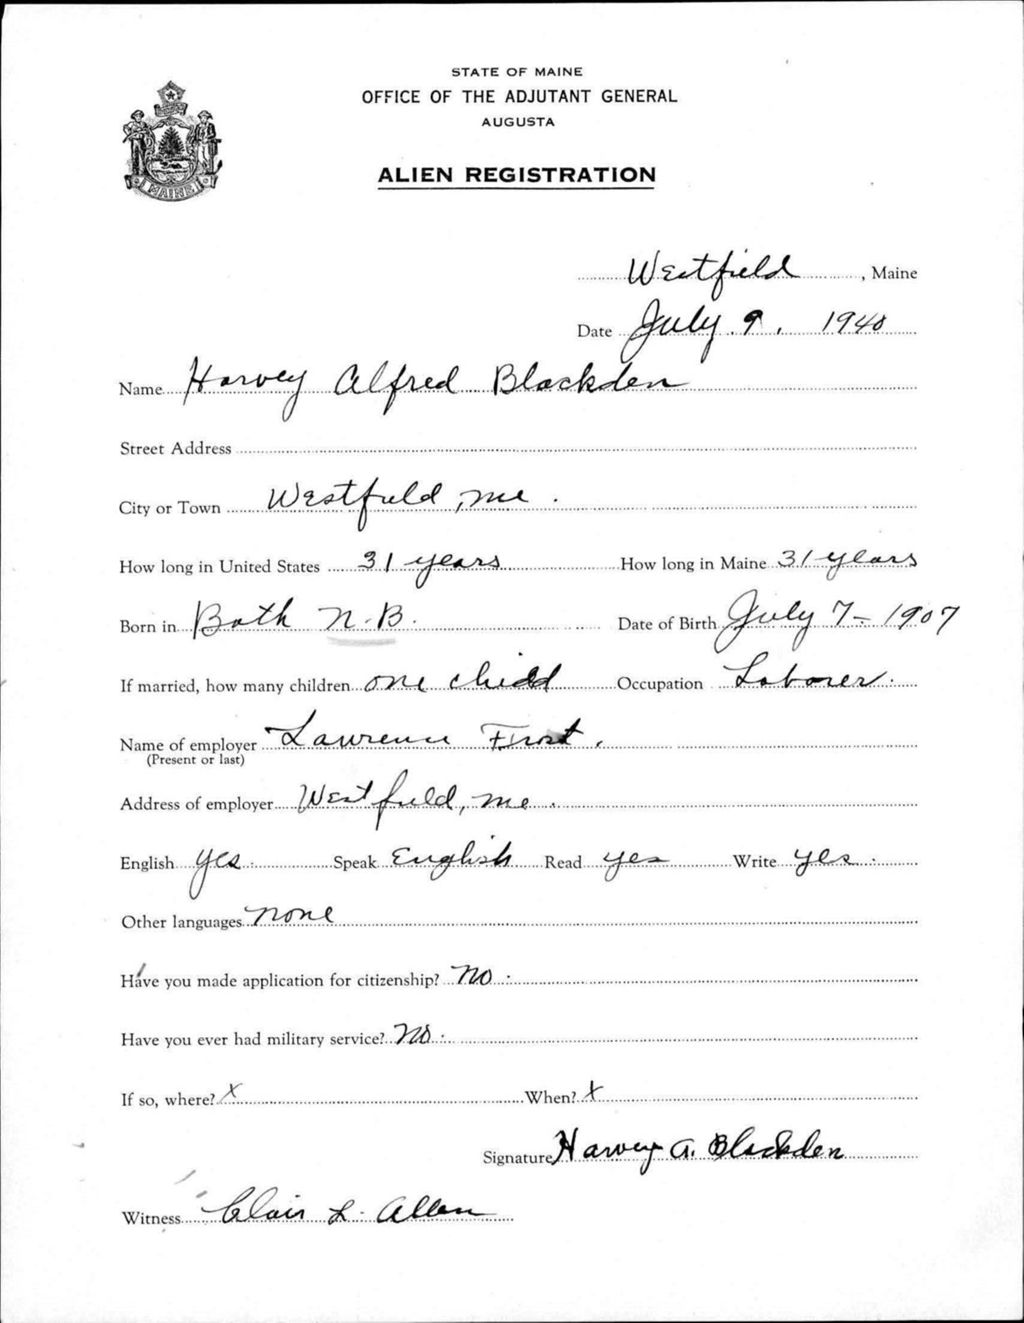 STATE OF MAINE
OFFICE OF THE ADJUTANT GENERAL
AUGUSTA
ALIEN REGISTRATION
MAINE
Westfield, Maine
Date July 9, 1940
Name Harvey Alfred Blackden
Street Address
City or Town Westfield, Me.
How long in United States 31 years How long in Maine 31 years
Born in Bath N.B. Date of Birth July 7 - 1907
If married, how many children one child Occupation Laborer.
Name of employer Lawrence Frost.
(Present or last)
Address of employer Westfield, Me.
English yes. Speak English Read yes Write yes.
Other languages none
Have you made application for citizenship? No.
Have you ever had military service? No.
If so, where? X When? X
Signature Harvey A. Blackden
Witness Clair L. Allen